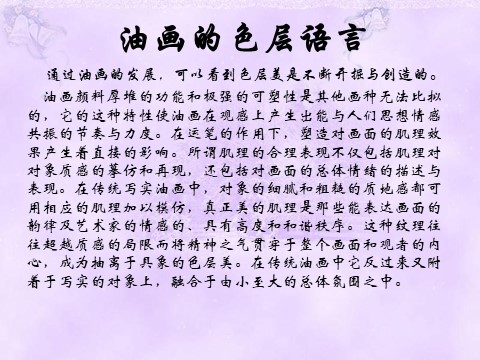 油画的色层语言
通过油画的发展，可以看到色层美是不断开掘与创造的。
油画颜料厚堆的功能和极强的可塑性是其他画种无法比拟
的，它的这种特性使油画在观感上产生出能与人们思想情感
共振的节奏与力度。在运笔的作用下，塑造对画面的肌理效
果产生着直接的影响。所谓肌理的合理表现不仅包括肌理对
对象质感的摹仿和再现，还包括对画面的总体情绪的描述与
表现。在传统写实油画中，对象的细腻和粗糙的质地感都可
用相应的肌理加以模仿，真正美的肌理是那些能表达画面的
韵律及艺术家的情感的、具有高度和和谐秩序。这种纹理往
往超越质感的局限而将精神之气贯穿于整个画面和观者的内
心，成为抽离于具象的色层美。在传统油画中它反过来又附
着于写实的对象上，融合于由小至大的总体氛围之中。